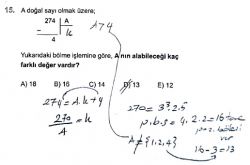 15. A doğal sayı olmak üzere;
274 | A
4 | k
A>4
Yukarıdaki bölme işlemine göre, A'nın alabileceği kaç
farklı değer vardır?
A) 18 B) 16 C) 14 D) 13 E) 12
274 = A.k+4
270 = k
A
270 = 3³.2.5
p.b.s = 4.2.2 = 16 tane
A ≠ {1,2,4}
16-3 = 13